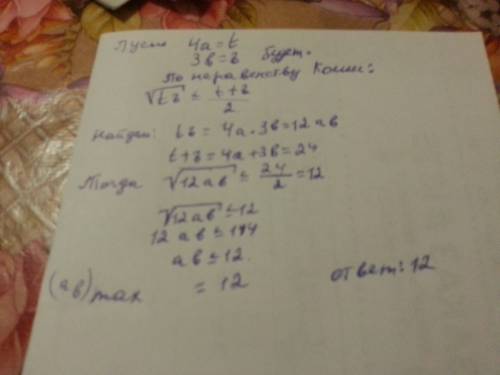 Пусть 4a = t
3b = z будет.
По неравенству Коши:
√tz ≤ t+z/2
Найдём: tz = 4a·3b = 12ab
t+z = 4a+3b = 24
Тогда √12ab ≤ 24/2 = 12
√12ab ≤ 12
12ab ≤ 144
ab ≤ 12
(ab)max = 12 ответ: 12